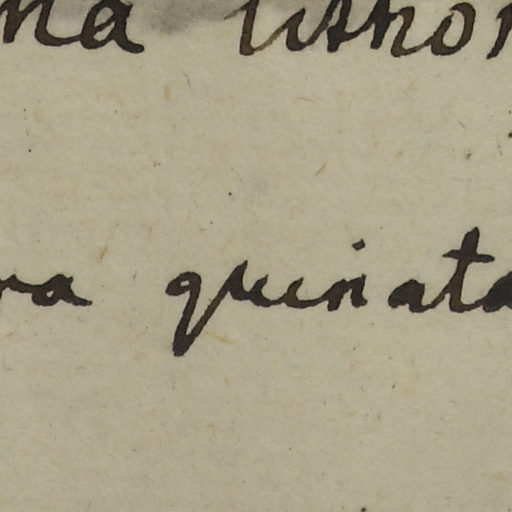 na lithor
ra quinata